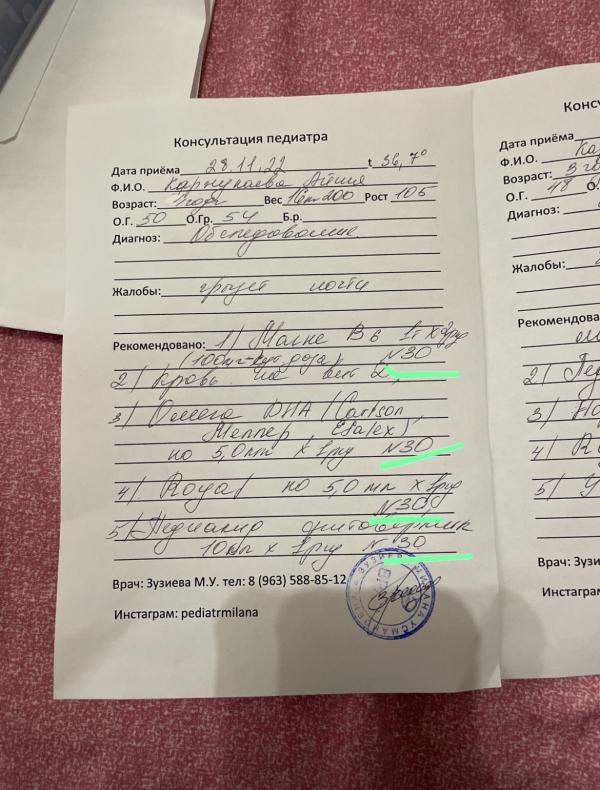 Консультация педиатра
Дата приёма 28.11.22 t 36,7°
Ф.И.О.
Возраст: Вес 16кг200 Рост 106
О.Г. 50 О.Гр. 54 Б.р.
Диагноз: Обследование
Жалобы: грызет ногти
Рекомендовано: 1) Магне B6 1т х 2р/д
(100мг-сут доза) N30
2) Кровь на вит D,
3) Омега DHA (Carlson
Меллер, Efalex)
по 5,0мл х 1р/д N30
4) Royal по 5,0 мл х 1р/д
N30
5) Педиакид
10мл х 1р/д N 30
Врач: Зузиева М.У. тел: 8 (963) 588-85-12
Инстаграм: pediatrmilana
Конс
Ф.И.О. Ка
Возраст: 3
О.Г. 48 О.
Диагноз:
Жалобы:
Рекомендова
2)
3)
4)
5)
Врач: Зузиев
Инстаграм: